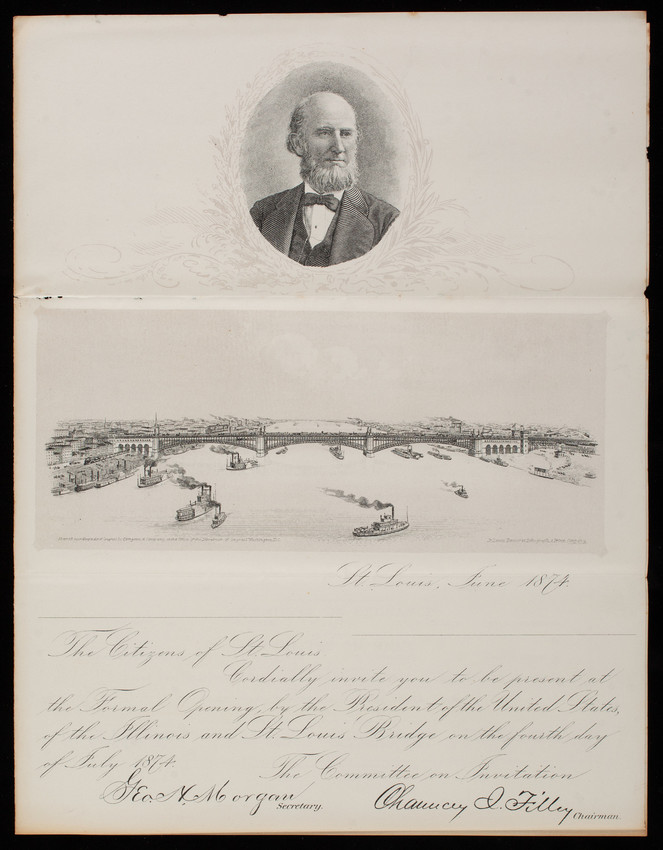 St. Louis, June 1874.
The Citizens of St. Louis
Cordially invite you to be present at
the Formal Opening, by the President of the United States,
of the Illinois and St. Louis Bridge on the fourth day
of July 1874.
The Committee on Invitation
Geo. H. Morgan
Secretary.
Chauncey I. Filley
Chairman.